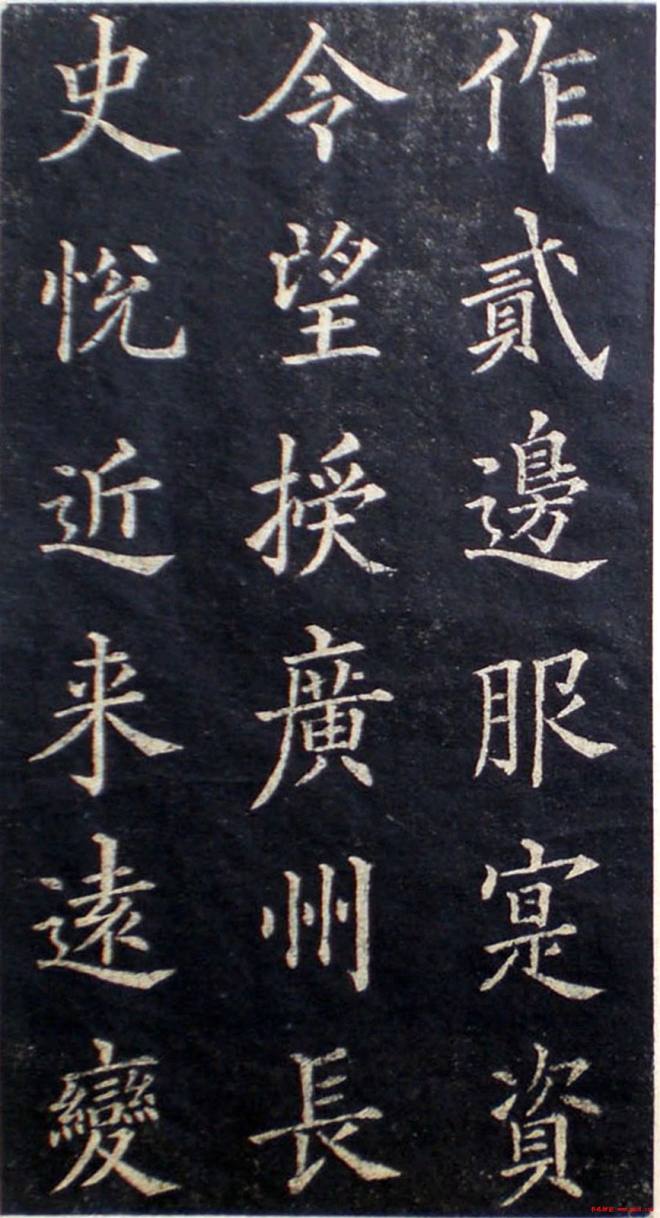 作貳邊服寔資
令望授廣州長
史悅近来遠變